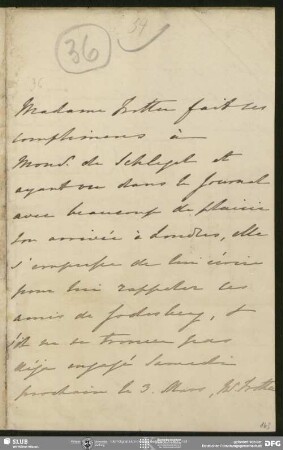 36
54
Madame Trotter fait ses
complimens à
Mons. de Schlegel et
ayant vu dans le Journal
avec beaucoup de plaisir
son arrivée à Londres, elle
s'empresse de lui écrire
pour lui rappeler ses
amis de Godesberg, et
s'il ne se trouve pas
déja engagé Samedi
prochain le 3. Mars, Mr Trotter
SLUB
DFG